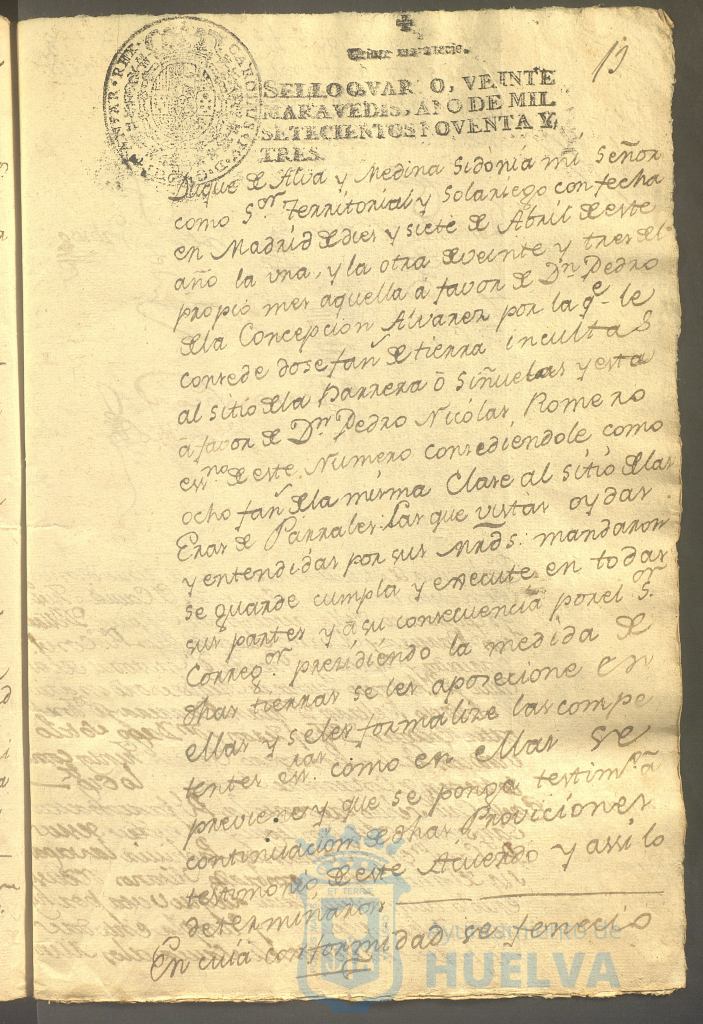 13
SELLO QVARTO, VEINTE
MARAVEDIS, AÑO DE MIL
SETECIENTOS NOVENTA Y
TRES.
CAROLUS IV D. G. HISPANIAR. REX
Duque de Alva y Medina Sidonia mi Señor
como S.or Territorial y Solariego con fecha
en Madrid de dies y siete de Abril de este
año la vna, y la otra de veinte y tres del
propio mes aquella a favor de D.n Pedro
de la Concepcion Alvarez por la q.e le
consede dose fan.s de tierra incultas
al sitio de la Barrera ō Siñuelas y esta
a favor de D.n Pedro Nicolas Romero
ess.no de este Numero consediendole como
ocho fan.s de la misma Clase al sitio de las
Eras de Parrales: Las que vistas oydas
y entendidas por sus Mrds. mandaron
se guarde cumpla y execute en todas
sus partes y a su consecuencia por el S.or
Correg.or presidiendo la medida de
dhas tierras se les aposecione en
ellas y se les formalize las compe
tentes ess.ras como en ellas se
previene, y que se ponga testim.o a
continuacion de dhas Proviciones
testimonio de este Acuerdo y assi lo
determinaron
En cuia conformidad se fenecio
Ayuntamiento de
HUELVA